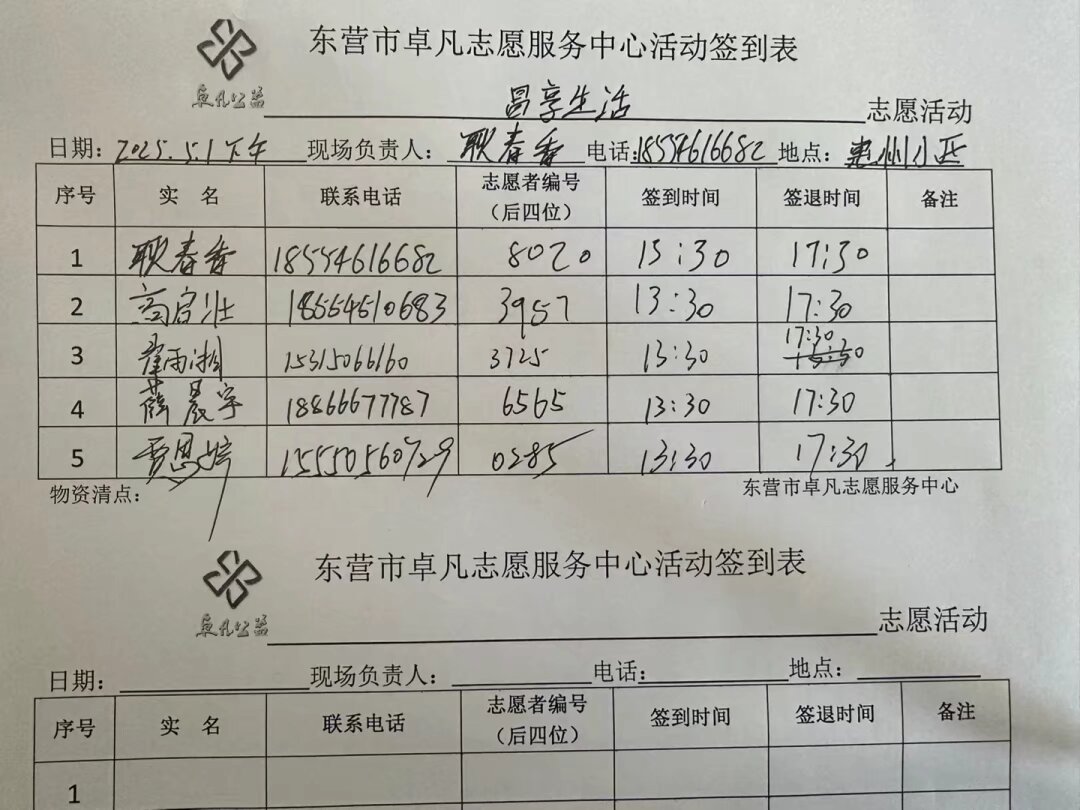 东营市卓凡志愿服务中心活动签到表
卓凡公益
昌享生活 志愿活动
日期：2025.5.1下午 现场负责人：耿春香 电话：18554616682 地点：惠州小区
序号 实 名 联系电话 志愿者编号（后四位） 签到时间 签退时间 备注
1 耿春香 18554616682 8020 13:30 17:30
2 高启壮 18554510683 3957 13:30 17:30
3 雨湘 15315066160 3725 13:30 17:30
4 薛晨宇 18866677787 6565 13:30 17:30
5 贾恩婷 15550560729 0285 13:30 17:30
物资清点： 东营市卓凡志愿服务中心
东营市卓凡志愿服务中心活动签到表
卓凡公益
志愿活动
日期： 现场负责人： 电话： 地点：
序号 实 名 联系电话 志愿者编号（后四位） 签到时间 签退时间 备注
1